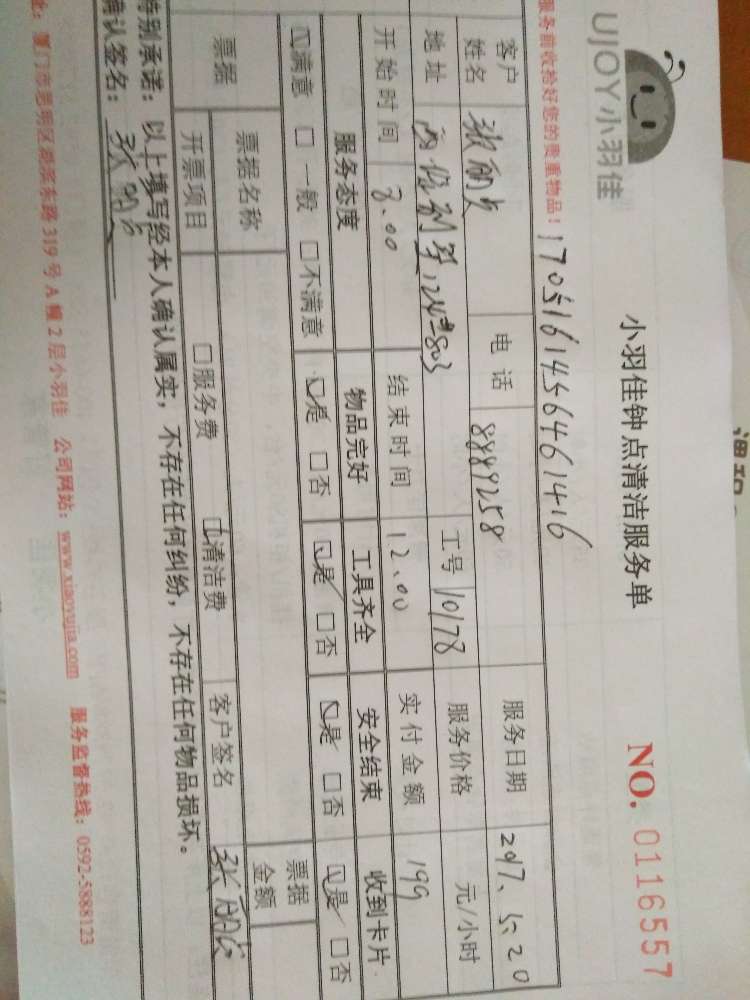 UJOY小羽佳
小羽佳钟点清洁服务单
NO. 0116557
服务前收拾好您的贵重物品!
17051614564661416
客户姓名 电话 8889258 服务日期 2017.5.20
地址 124#803 工号 10178 服务价格 元/小时
开始时间 8.00 结束时间 12.00 实付金额 199
服务态度 物品完好 工具齐全 安全结束 收到卡片
☑满意 □一般 □不满意 ☑是 □否 ☑是 □否 ☑是 □否 ☑是 □否
票据 票据名称 票据金额
开票项目 □服务费 ☑清洁费 客户签名
特别承诺:以上填写经本人确认属实,不存在任何纠纷,不存在任何物品损坏。
确认签名:
址:厦门市思明区湖滨东路319号A幢2层小羽佳 公司网站:www.xiaoyujia.com 服务监督热线:0592-5888123